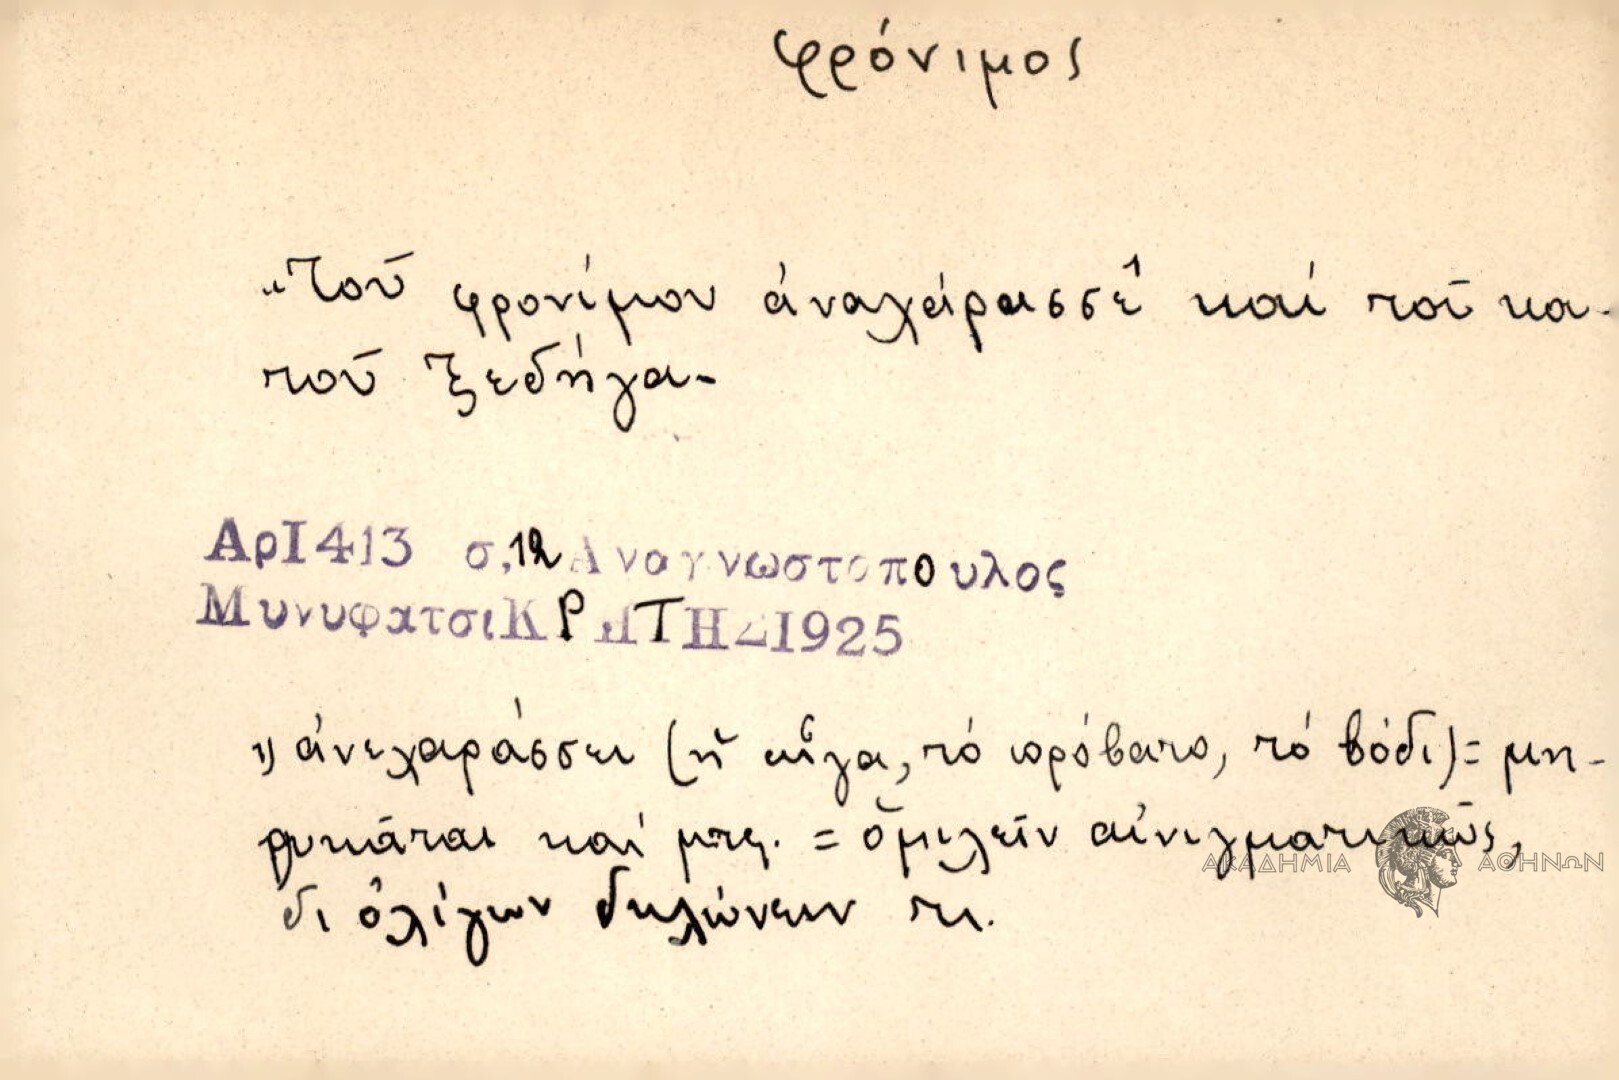 φρόνιμος
"Τοῦ φρονίμου ἀναχάρασσε¹ καί τοῦ κα-
τοῦ ξεδήγα-
Αρ1413 σ.12 Αναγνωστοπουλος
ΜυνυφατσιΚΡΗΤΗΣ1925
1) ἀνεχαράσσει (ἡ αἴγα, τό πρόβατο, τό βόδι) = μη-
ρυκᾶται καί μτφ. = ὁμιλεῖν αἰνιγματικῶς,
δι ὀλίγων δηλώνειν τι.
ΑΚΑΔΗΜΙΑ ΑΘΗΝΩΝ